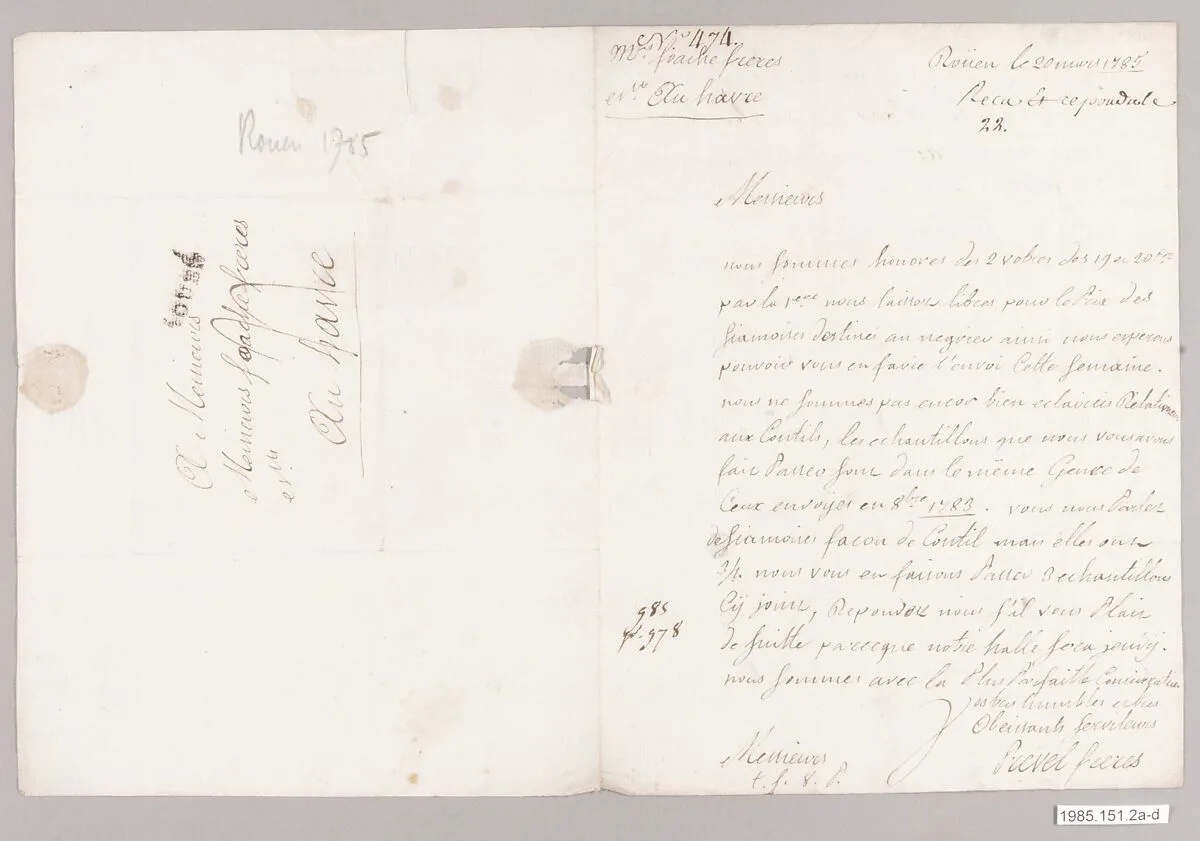 Rouen 1785
A Messieurs
Messieurs foache freres
Au havre
N° 474.
Mrs foache freres
Au havre
Roüen le 20 mars 1785
Recu & repondu le
22.
Messieurs
nous sommes honorés des 2 votres des 19 et 20 Cte
par la 1ere nous laissez libres pour le Prix des
siamoises destinés au negrier ainsi nous esperons
pouvoir vous en faire l'envoi Cette semaine.
nous ne sommes pas encor bien eclaircis Relativem
aux Coutils, les echantillons que nous vous avons
fait Passer sont dans le même Genre de
Ceux envoyés en 8bre 1783. vous nous Parlez
de siamoises facon de Coutil mais elles ont
3/4. nous vous en faisons Passer 3 echantillons
Cy joint, Repondez nous s'il vous Plait
de suitte parceque notre halle sera jeudy.
985
978
nous sommes avec la Plus Parfaitte Consideration
vos tres humbles et tres
Obeissants serviteurs
Messieurs
Prevel freres
t. s. v. p.
1985.151.2a-d